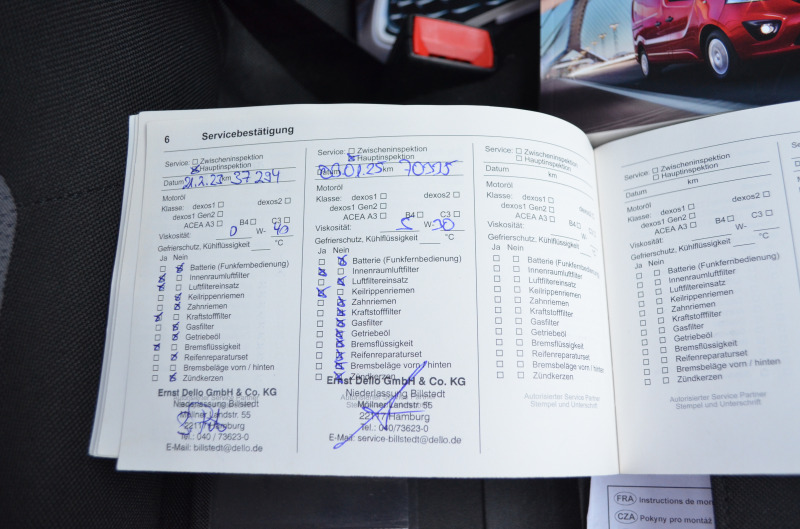 6 Servicebestätigung
Service: Zwischeninspektion
Hauptinspektion
Datum 21.2.23 km 37 294
Motoröl
Klasse: dexos1 dexos2
dexos1 Gen2
ACEA A3 B4 C3
Viskosität: 0 W- 40
Gefrierschutz, Kühlflüssigkeit °C
Ja Nein
Batterie (Funkfernbedienung)
Innenraumluftfilter
Luftfiltereinsatz
Keilrippenriemen
Zahnriemen
Kraftstofffilter
Gasfilter
Getriebeöl
Bremsflüssigkeit
Reifenreparaturset
Bremsbeläge vorn / hinten
Zündkerzen
Ernst Dello GmbH & Co. KG
Niederlassung Billstedt
Möllner Landstr. 55
Hamburg
Tel.: 040 / 73623-0
E-Mail: billstedt@dello.de
Service: Zwischeninspektion
Hauptinspektion
Datum 01.25 km
Motoröl
Klasse: dexos1 dexos2
dexos1 Gen2
ACEA A3 B4 C3
Viskosität: 5 W- 30
Gefrierschutz, Kühlflüssigkeit °C
Ja Nein
Batterie (Funkfernbedienung)
Innenraumluftfilter
Luftfiltereinsatz
Keilrippenriemen
Zahnriemen
Kraftstofffilter
Gasfilter
Getriebeöl
Bremsflüssigkeit
Reifenreparaturset
Bremsbeläge vorn / hinten
Zündkerzen
Ernst Dello GmbH & Co. KG
Niederlassung Billstedt
Möllner Landstr. 55
Hamburg
Tel.: 040/73623-0
E-Mail: service-billstedt@dello.de
Service: Zwischeninspektion
Hauptinspektion
Datum km
Motoröl
Klasse: dexos1 dexos2
dexos1 Gen2
ACEA A3 B4 C3
Viskosität: W-
Gefrierschutz, Kühlflüssigkeit
Ja Nein
Batterie (Funkfernbedienung)
Innenraumluftfilter
Luftfiltereinsatz
Keilrippenriemen
Zahnriemen
Kraftstofffilter
Gasfilter
Getriebeöl
Bremsflüssigkeit
Reifenreparaturset
Bremsbeläge vorn / hinten
Zündkerzen
Autorisierter Service Partner
Stempel und Unterschrift
Service: Zwischeninspektion
Hauptinspektion
Datum km
Motoröl
Klasse: dexos1 dexos2
dexos1 Gen2
ACEA A3 B4 C3
Viskosität: W-
Gefrierschutz, Kühlflüssigkeit °C
Ja Nein
Batterie (Funkfernbedienung)
Innenraumluftfilter
Luftfiltereinsatz
Keilrippenriemen
Zahnriemen
Kraftstofffilter
Gasfilter
Getriebeöl
Bremsflüssigkeit
Reifenreparaturset
Bremsbeläge vorn / hinten
Zündkerzen
Autorisierter Service Partner
Stempel und Unterschrift
FRA Instructions de mon
CZA Pokyny pro montáž